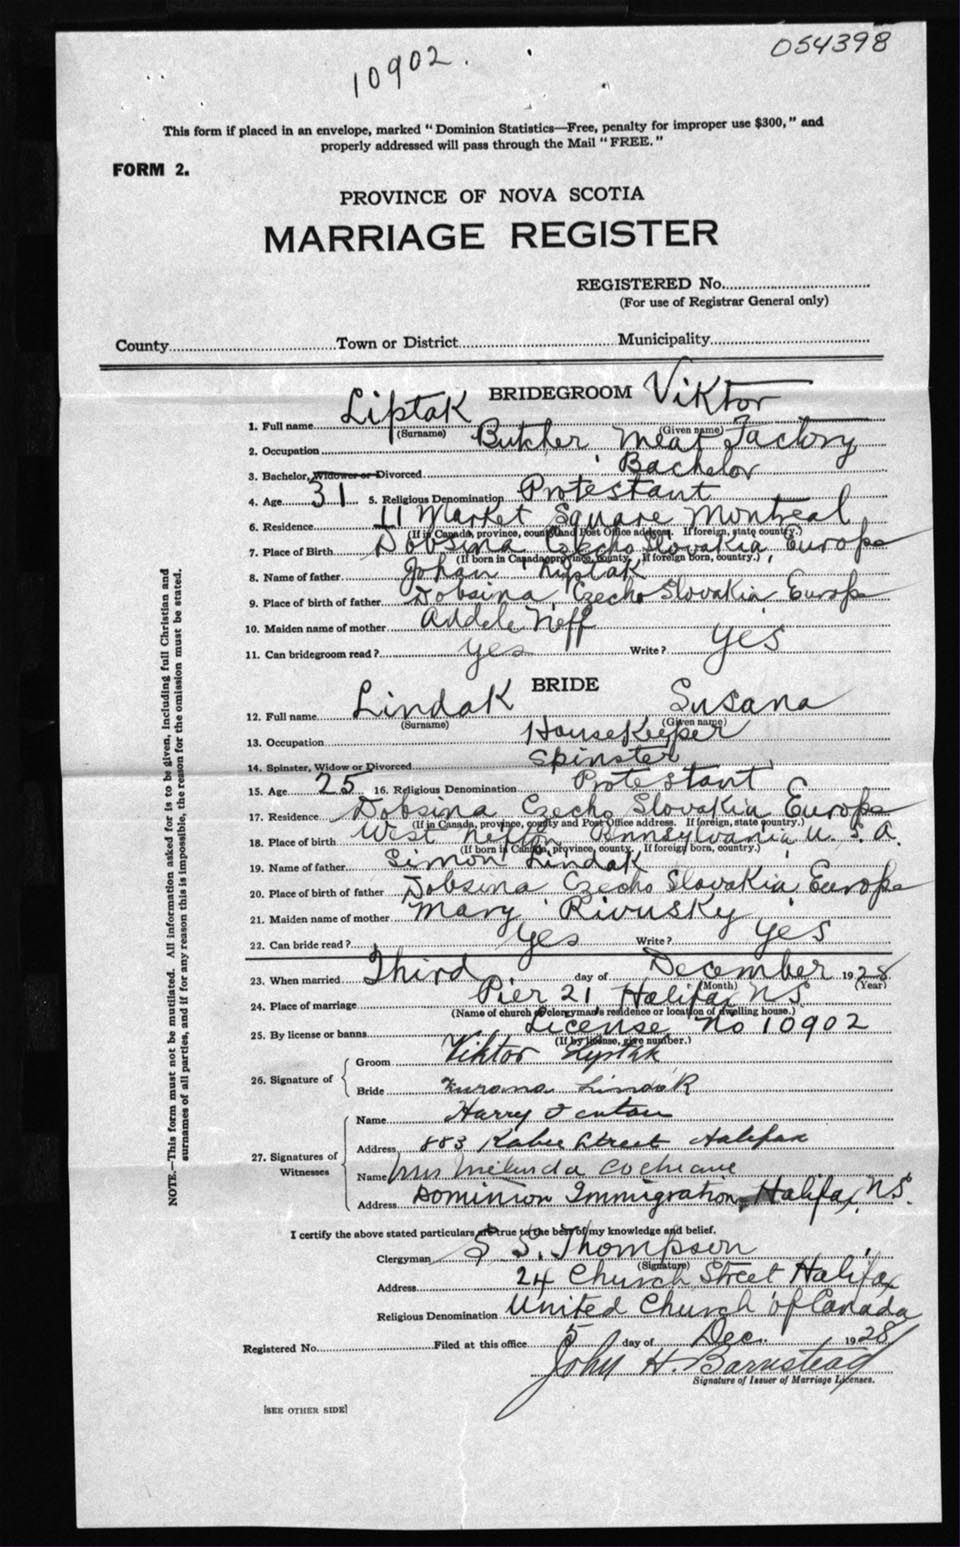 054398
10902.
This form if placed in an envelope, marked "Dominion Statistics—Free, penalty for improper use $300," and
properly addressed will pass through the Mail "FREE."
FORM 2.
PROVINCE OF NOVA SCOTIA
MARRIAGE REGISTER
REGISTERED No.
(For use of Registrar General only)
County Town or District Municipality
BRIDEGROOM
1. Full name Liptak Viktor
(Surname) (Given name)
2. Occupation Butcher, Meat Factory
3. Bachelor, Widower or Divorced Bachelor
4. Age 31 5. Religious Denomination Protestant
6. Residence 11 Market Square Montreal
(If in Canada, province, county and Post Office address. If foreign, state country.)
7. Place of Birth Dobsina Czecho Slovakia, Europe
(If born in Canada, province, county. If foreign born, country.)
8. Name of father Johan Liptak
9. Place of birth of father Dobsina, Czecho Slovakia, Europe
10. Maiden name of mother Addele Neff
11. Can bridegroom read? yes Write? yes
BRIDE
12. Full name Lindak Susana
(Surname) (Given name)
13. Occupation HouseKeeper
14. Spinster, Widow or Divorced Spinster
15. Age 25 16. Religious Denomination Protestant
17. Residence Dobsina Czecho Slovakia Europe
(If in Canada, province, county and Post Office address. If foreign, state country.)
18. Place of birth West Pennsylvania, U.S.A.
(If born in Canada, province, county. If foreign born, country.)
19. Name of father Simon Lindak
20. Place of birth of father Dobsina Czecho Slovakia, Europe
21. Maiden name of mother Mary Rivusky
22. Can bride read? yes Write? yes
23. When married Third day of December 1928
(Month) (Year)
24. Place of marriage Pier 21, Halifax NS.
(Name of church or clergyman's residence or location of dwelling house.)
25. By license or banns License No 10902
(If by license, give number.)
26. Signature of Groom Viktor
Bride Lindak
27. Signatures of Witnesses
Name Harry
Address 883 Street Halifax
Name Mrs Melinda Cochrane
Address Dominion Immigration, Halifax, N.S.
I certify the above stated particulars are true to the best of my knowledge and belief.
Clergyman S. Thompson
(Signature)
Address 24 Church Street Halifax
Religious Denomination United Church of Canada
Registered No. Filed at this office 5 day of Dec. 1928
John H. Barnstead
Signature of Issuer of Marriage Licenses.
[SEE OTHER SIDE]
NOTE.—This form must not be mutilated. All information asked for is to be given, including full Christian and
surnames of all parties, and if for any reason this is impossible, the reason for the omission must be stated.